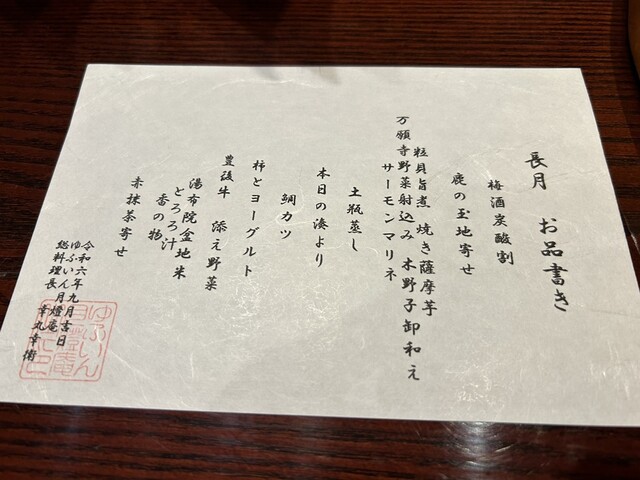 長月 お品書き
梅酒炭酸割
鹿の玉地寄せ
粒貝旨煮 焼き薩摩芋
万願寺野菜射込み 木野子卸和え
サーモンマリネ
土瓶蒸し
本日の湊より
鯛カツ
柿とヨーグルト
豊後牛 添え野菜
湯布院盆地米
とろろ汁
香の物
赤抹茶寄せ
令和六年九月吉日
ゆふいん月燈庵
総料理長 幸丸幸衛
ゆふいん
月燈庵